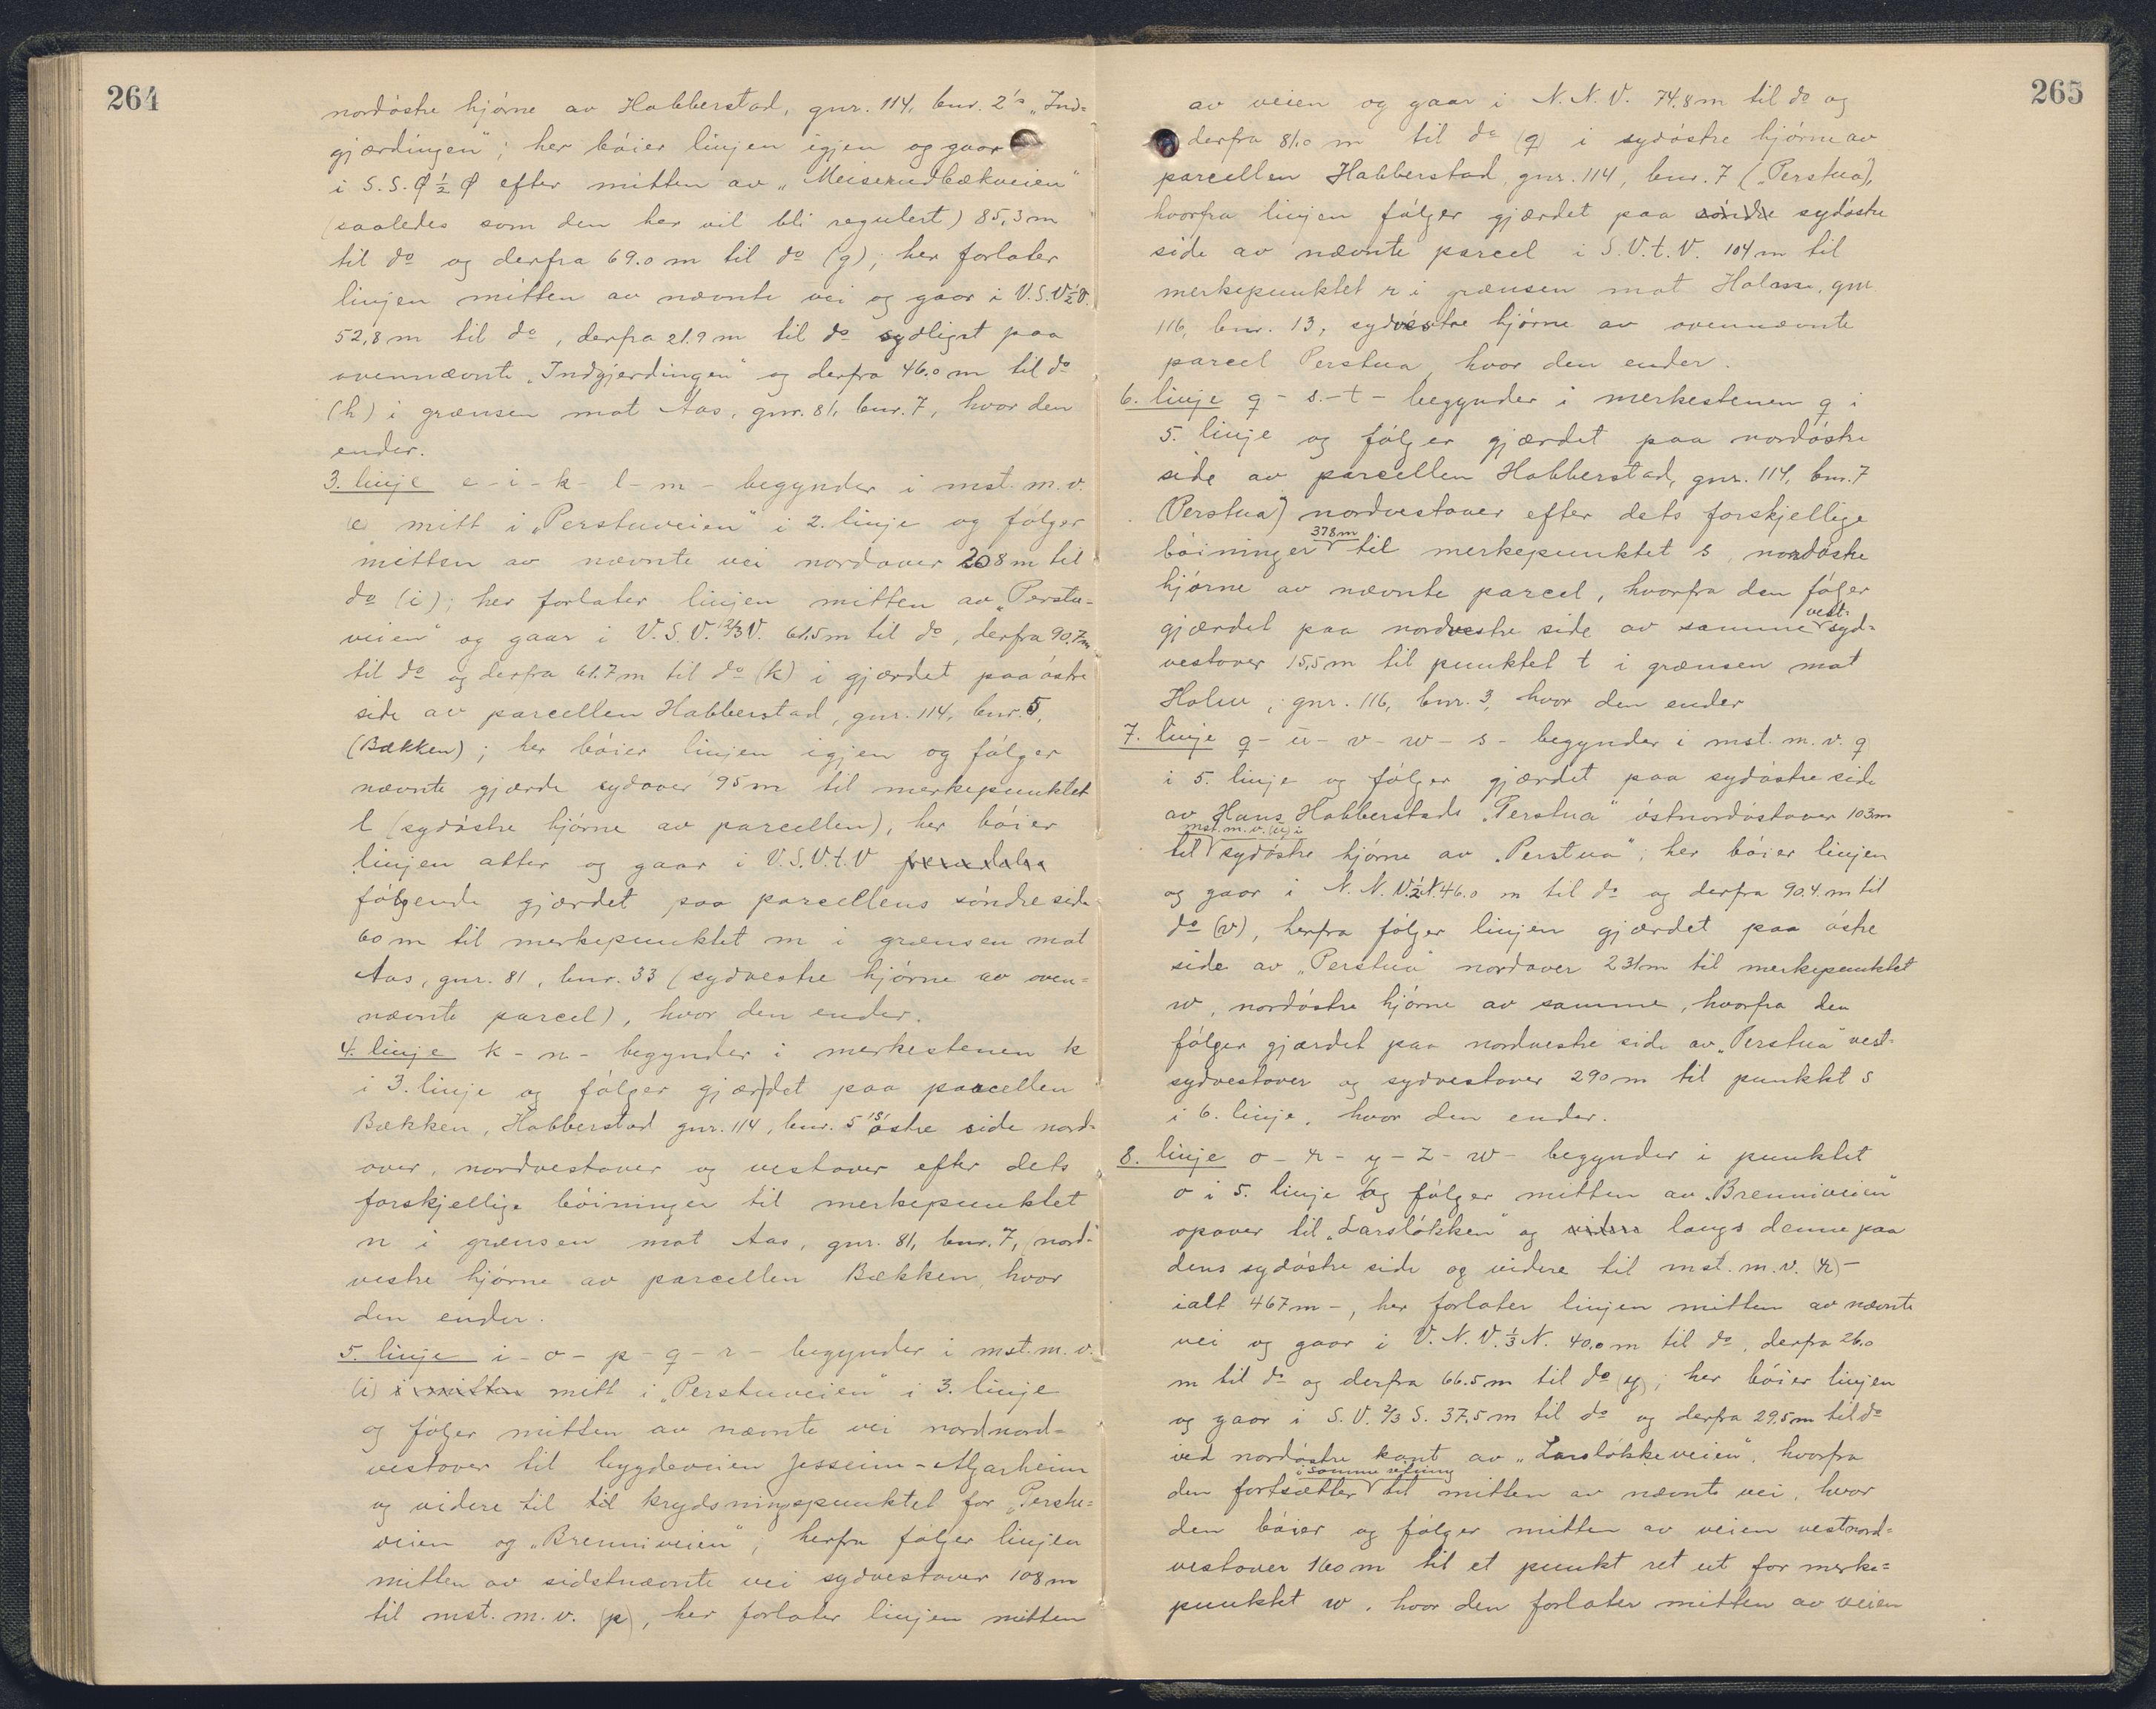 264
nordöstre hjörne av Habberstad, gnr. 114, bnr. 2's „Ind=
gjærdingen"; her böier linjen igjen og gaar
i S. S. Ø ½ Ø efter mitten av „Meiserudbækveien"
(saaledes som den her vil bli regulert) 85,3 m
til do og derfra 69.0 m til do (g); her forlater
linjen mitten av nævnte vei og gaar i V.S.V½V.
52,8 m til do, derfra 21.9 m til do sydligst paa
ovennævnte „Indgjerdingen" og derfra 46.0 m til do
(h) i grænsen mot Aas, gnr. 81, bnr. 7, hvor den
ender.
3. linje e - i - k - l - m - begynder i mst. m. v.
(e) mitt i „Perstuveien" i 2. linje og følger
mitten av nævnte vei nordover 208 m til
do (i); her forlater linjen mitten av „Perstu=
veien" og gaar i V. S. V. 2/3 V. 61.5 m til do, derfra 90.7 m
til do og derfra 61.7 m til do (k) i gjærdet paa östre
side av parcellen Habberstad, gnr. 114, bnr. 5,
(Bækken); her böier linjen igjen og fölger
nævnte gjærde sydover 95 m til merkepunktet
l (sydöstre hjörne av parcellen), her böier
linjen atter og gaar i V.S.V.t.V
fölgende gjærdet paa parcellens söndre side
60 m til merkepunktet m i grænsen mot
Aas, gnr. 81, bnr. 33 (sydvestre hjörne av oven=
nævnte parcel), hvor den ender.
4. linje k - n - begynder i merkestenen k
i 3. linje og fölger gjærdet paa parcellen
Bækken, Habberstad gnr. 114, bnr. 5's östre side nord=
over, nordvestover og vestover efter dets
forskjellige böininger til merkepunktet
n i grænsen mot Aas, gnr. 81, bnr. 7, (nord=
vestre hjörne av parcellen Bækken, hvor
den ender.
5. linje i - o - p - q - r - begynder i mst. m. v.
(i) i mitten mitt i „Perstuveien" i 3. linje
og fölger mitten av nævnte vei nordnord=
vestover til bygdeveien Jessheim - Algarheim
og videre til til krydsningspunktet for „Perstu=
veien og „Brenniveien", herfra fölger linjen
mitten av sidstnævnte vei sydvestover 108 m
til mst. m. v. (p), her forlater linjen mitten
265
av veien og gaar i N. N. V. 74.8 m til do og
derfra 81.0 m til do (q) i sydöstre hjörne av
parcellen Habberstad, gnr. 114, bnr. 7 („Perstua"),
hvorfra linjen fölger gjærdet paa söndre sydöstre
side av nævnte parcel i S.V.t.V. 104 m til
merkepunktet r i grænsen mot Holm, gnr.
116, bnr. 13, sydvestre hjörne av ovennævnte
parcel Perstua, hvor den ender.
6. linje q - s. - t - begynder i merkestenen q i
5. linje og fölger gjærdet paa nordöstre
side av parcellen Habberstad, gnr. 114, bnr. 7
(Perstua) nordvestover efter dets forskjellige
378 m
böininger til merkepunktet s, nordöstre
hjörne av nævnte parcel, hvorfra den fölger
vest-
gjærdet paa nordvestre side av samme syd=
vestover 15,5 m til punktet t i grænsen mot
Holm, gnr. 116, bnr. 3, hvor den ender
7. linje q - ü - v - w - s - begynder i mst. m. v. q
i 5. linje og fölger gjærdet paa sydöstre side
av Hans Habberstads „Perstua" östnordöstover 103 m
mst. m. v. (ü) i
til sydöstre hjörne av „Perstua"; her böier linjen
og gaar i N. N. V.½N. 46.0 m til do og derfra 90.4 m til
do (v), herfra fölger linjen gjærdet paa östre
side av „Perstua" nordover 231 m til merkepunktet
w, nordöstre hjörne av samme, hvorfra den
fölger gjærdet paa nordvestre side av „Perstua" vest-
sydvestover og sydvestover 290 m til punktet s
i 6. linje, hvor den ender.
8. linje o - x - y - z - w - begynder i punktet
o i 5. linje og fölger mitten av „Brenniveien"
opover til „Larslökken" og videre langs denne paa
dens sydöstre side og videre til mst. m. v. (x) -
ialt 467 m -, her forlater linjen mitten av nævnte
vei og gaar i V. N. V. 1/3 N. 40,0 m til do, derfra 26.0
m til do og derfra 66.5 m til do (y); her böier linjen
og gaar i S. V. 2/3 S. 37.5 m til do og derfra 29.5 m til do
ved nordöstre kant av „Larslökkeveien", hvorfra
i samme retning
den fortsætter til mitten av nævnte vei, hvor
den böier og fölger mitten av veien vestnord=
vestover 160 m til et punkt ret ut for merke=
punktet w, hvor den forlater mitten av veien